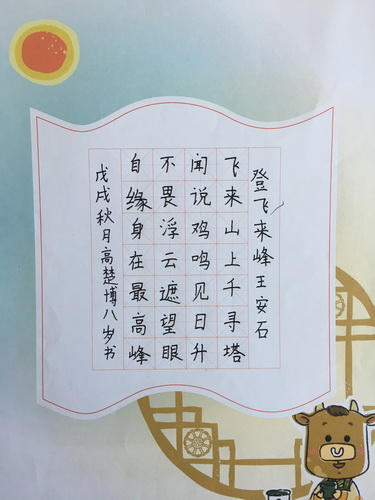 登飞来峰王安石
飞来山上千寻塔
闻说鸡鸣见日升
不畏浮云遮望眼
自缘身在最高峰
戊戌秋月高楚博八岁书